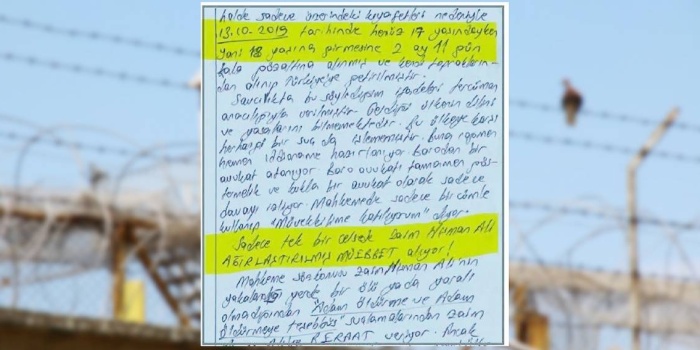 halde sadece üzerindeki kıyafetleri nedeniyle
13.10.2019 tarihinde henüz 17 yaşındayken
yani 18 yaşına girmesine 2 ay 11 gün
kala gözaltına alınmış ve kendi toprakların-
dan alınıp Türkiye'ye getirilmiştir.
Savcılıkta bu söylediğim ifadeleri tercüman
aracılığıyla verilmiştir. Getirdiği ülkenin dilini
ve yasalarını bilmemektedir. Bu ülkeye karşı
herhangi bir suç da işlememiştir. Buna rağmen
hemen iddianame hazırlanıyor. Barodan bir
avukat atanıyor. Baro avukatı tamamen gös-
termelik ve kukla bir avukat olarak sadece
davayı izliyor. Mahkemede sadece bir cümle
kullanıp "Müvekkilime katılıyorum" diyor.
Sadece tek bir celsede Zaim Numan Ali
AĞIRLAŞTIRILMIŞ MÜEBBET alıyor!
Mahkeme sonucunu Zaim Numan Ali'nin
yakalandığı yerde bir ölü yada yaralı
olmadığından "Adam öldürme ve Adam
öldürmeye teşebbüs" suçlamalarından Zaim
BERAAT veriyor. Ancak